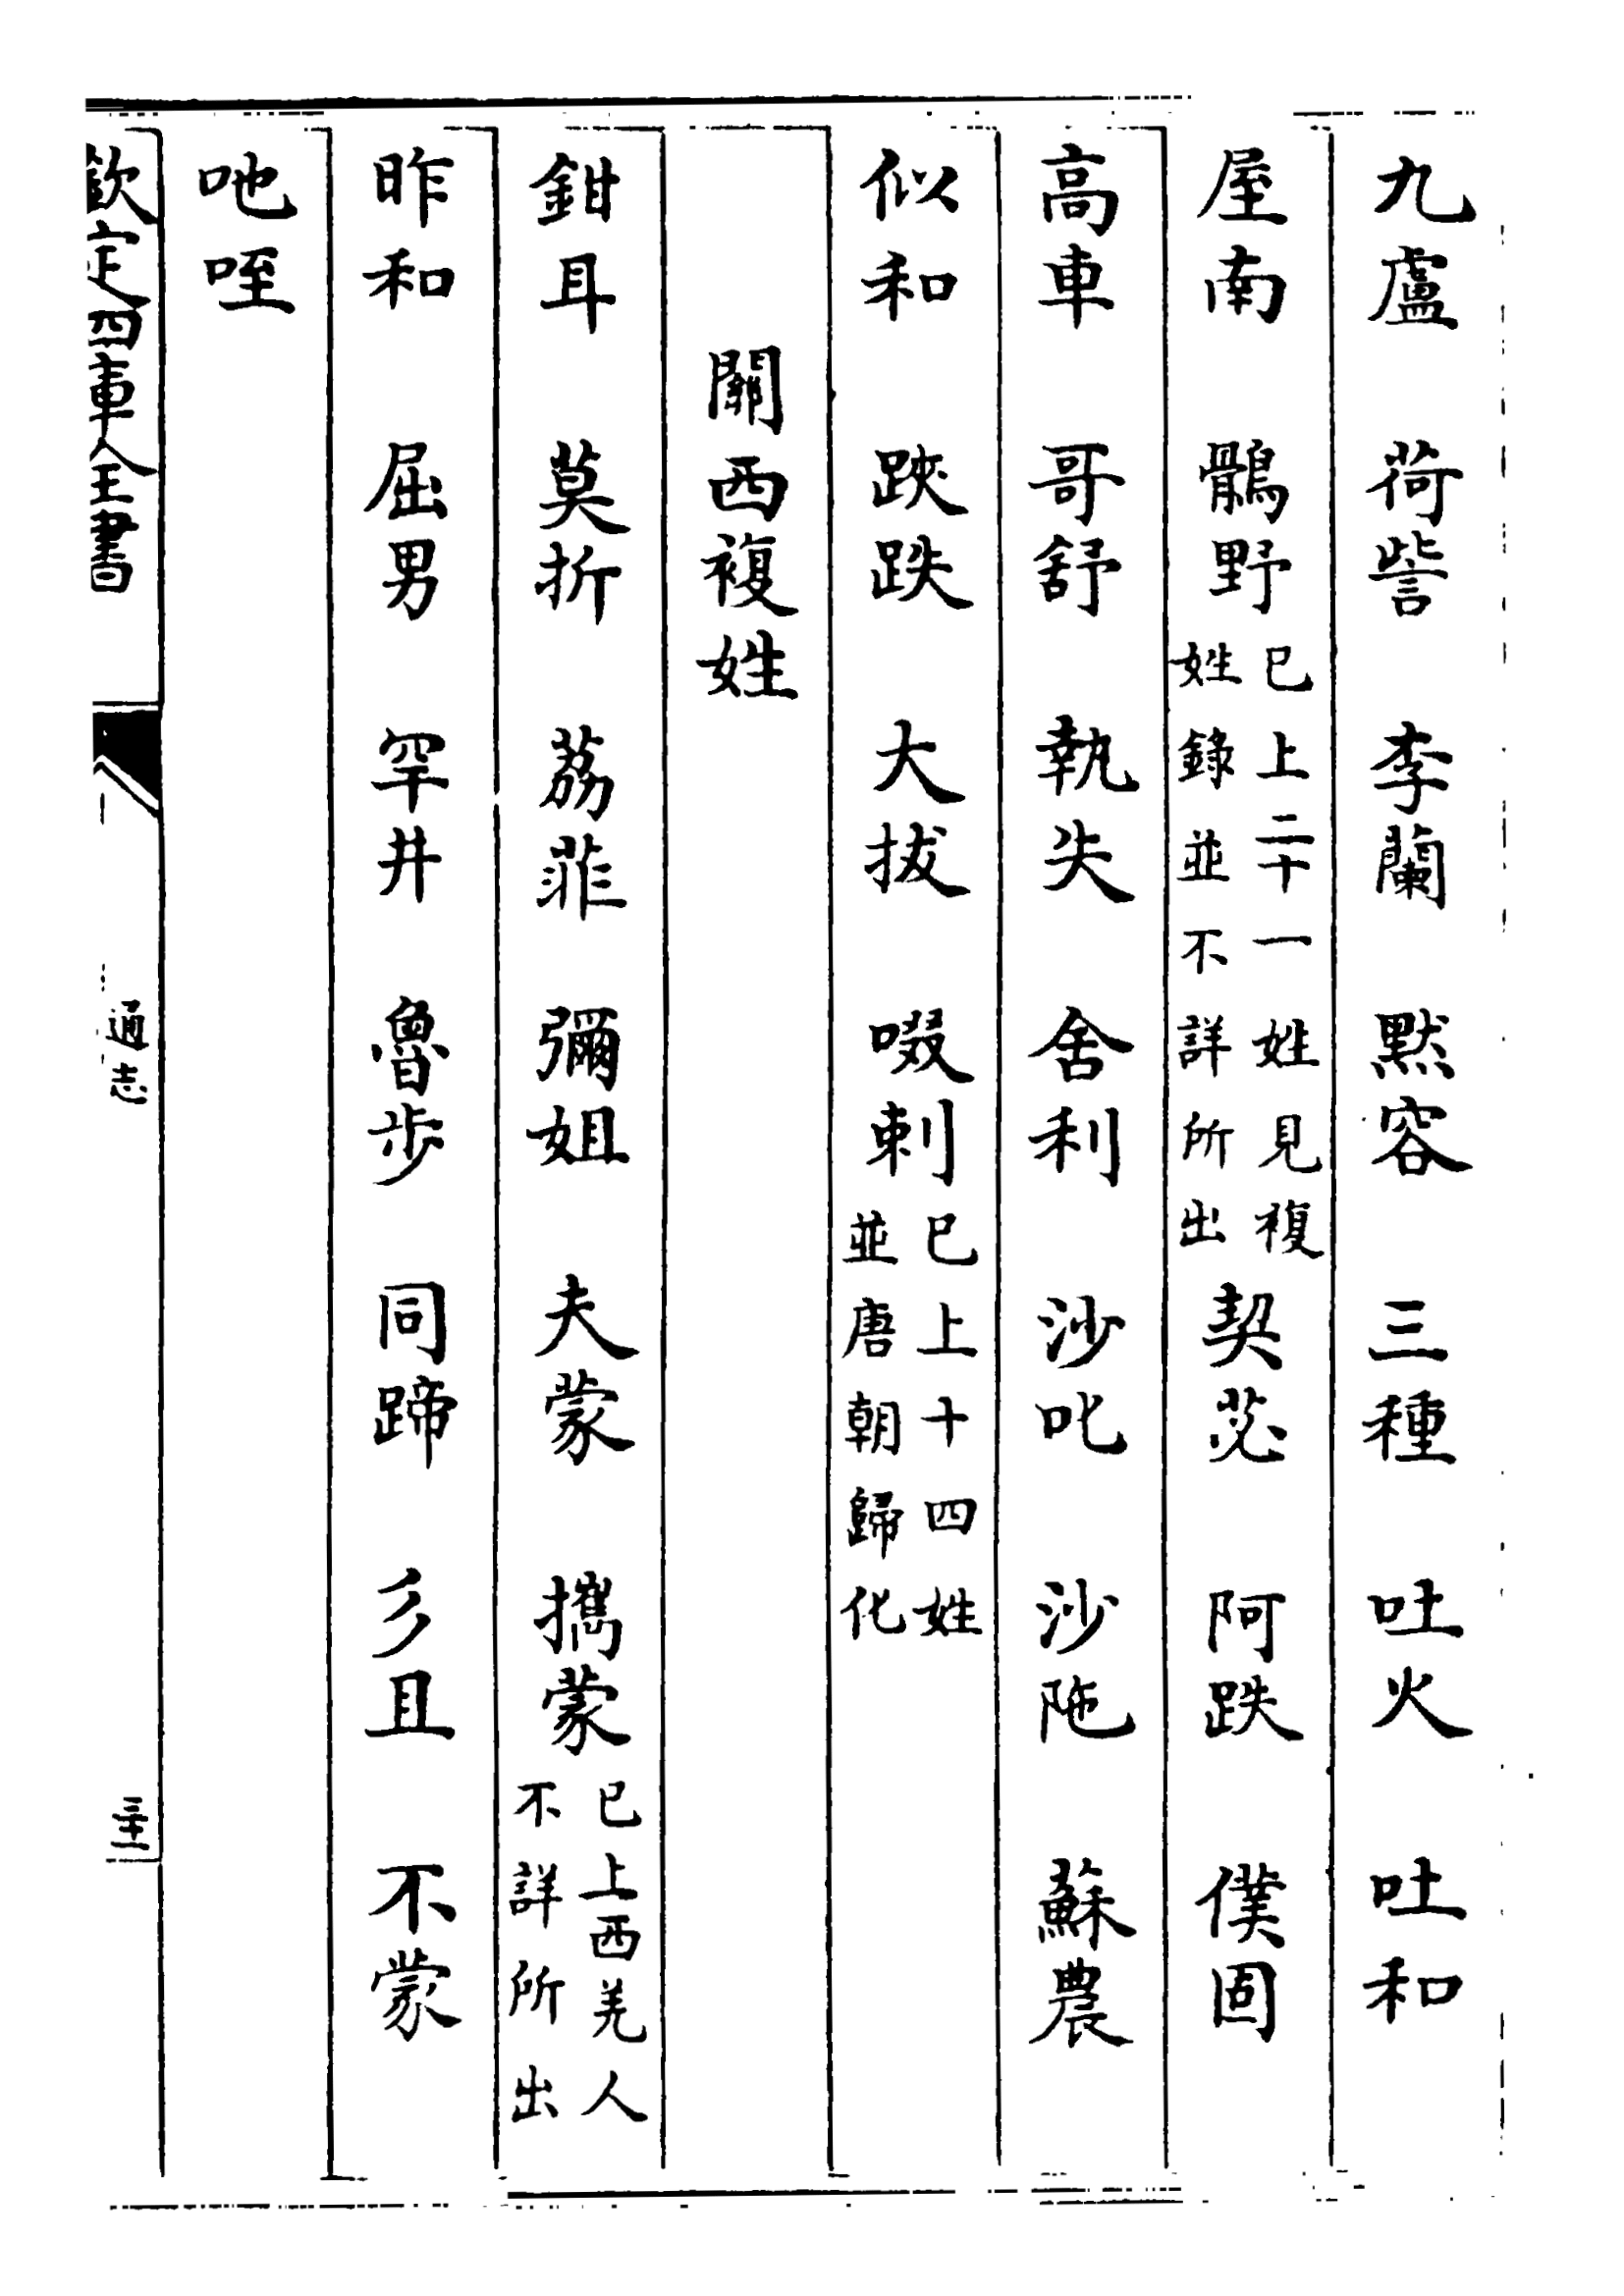 九盧 荷訾 李蘭 黙容 三種 吐火 吐和
屋南 鶻野已上二十一姓見複姓錄並不詳所出 契苾 阿跌 僕固
高車 哥舒 執失 舍利 沙叱 沙陁 蘇農
似和 䟦跌 大拔 啜剌已上十四姓並唐朝歸化
關西複姓
鉗耳 莫折 荔菲 彌姐 夫蒙 㩗蒙已上西羌人不詳所出
昨和 屈男 罕井 魯步 同蹄 彡且 不蒙
吔咥
欽定四庫全書
通志